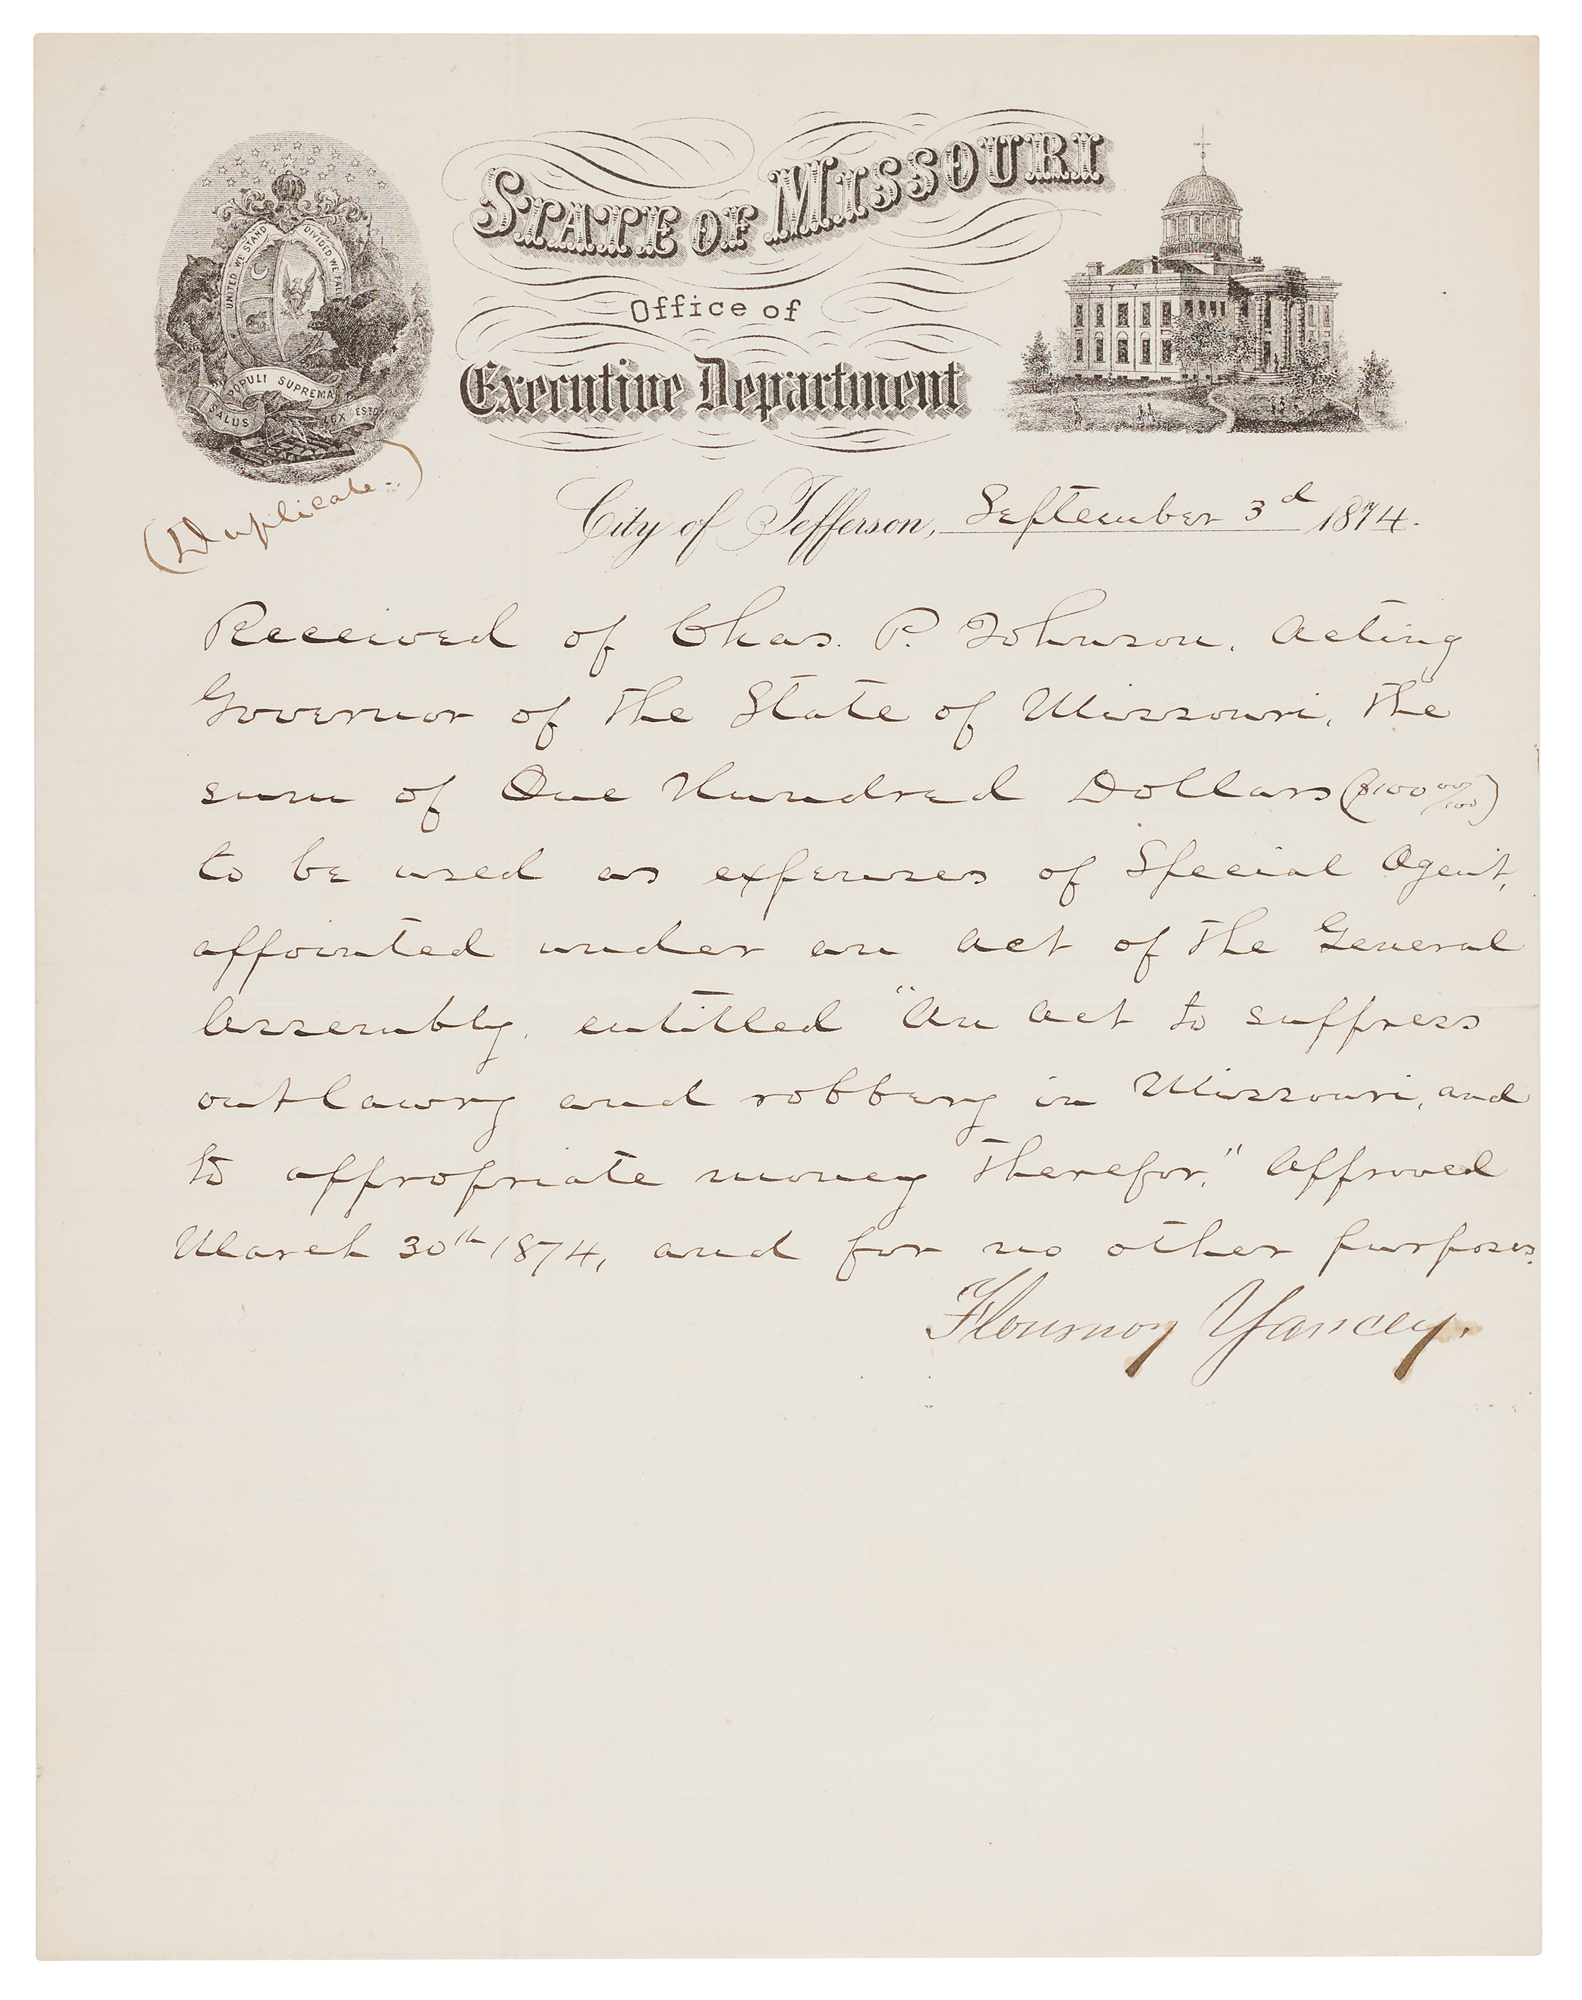 State of Missouri
Office of
Executive Department
UNITED WE STAND DIVIDED WE FALL
SALUS POPULI SUPREMA LEX ESTO
(Duplicate.)
City of Jefferson, September 3d 1874.
Received of Chas. P. Johnson, Acting
Governor of the State of Missouri, the
sum of One Hundred Dollars ($100 00/100)
to be used as expenses of Special Agent,
appointed under an act of the General
Assembly, entitled "An Act to suppress
outlawry and robbery in Missouri, and
to appropriate money therefor." Approved
March 30th 1874, and for no other purposes.
Flournoy Yancey.